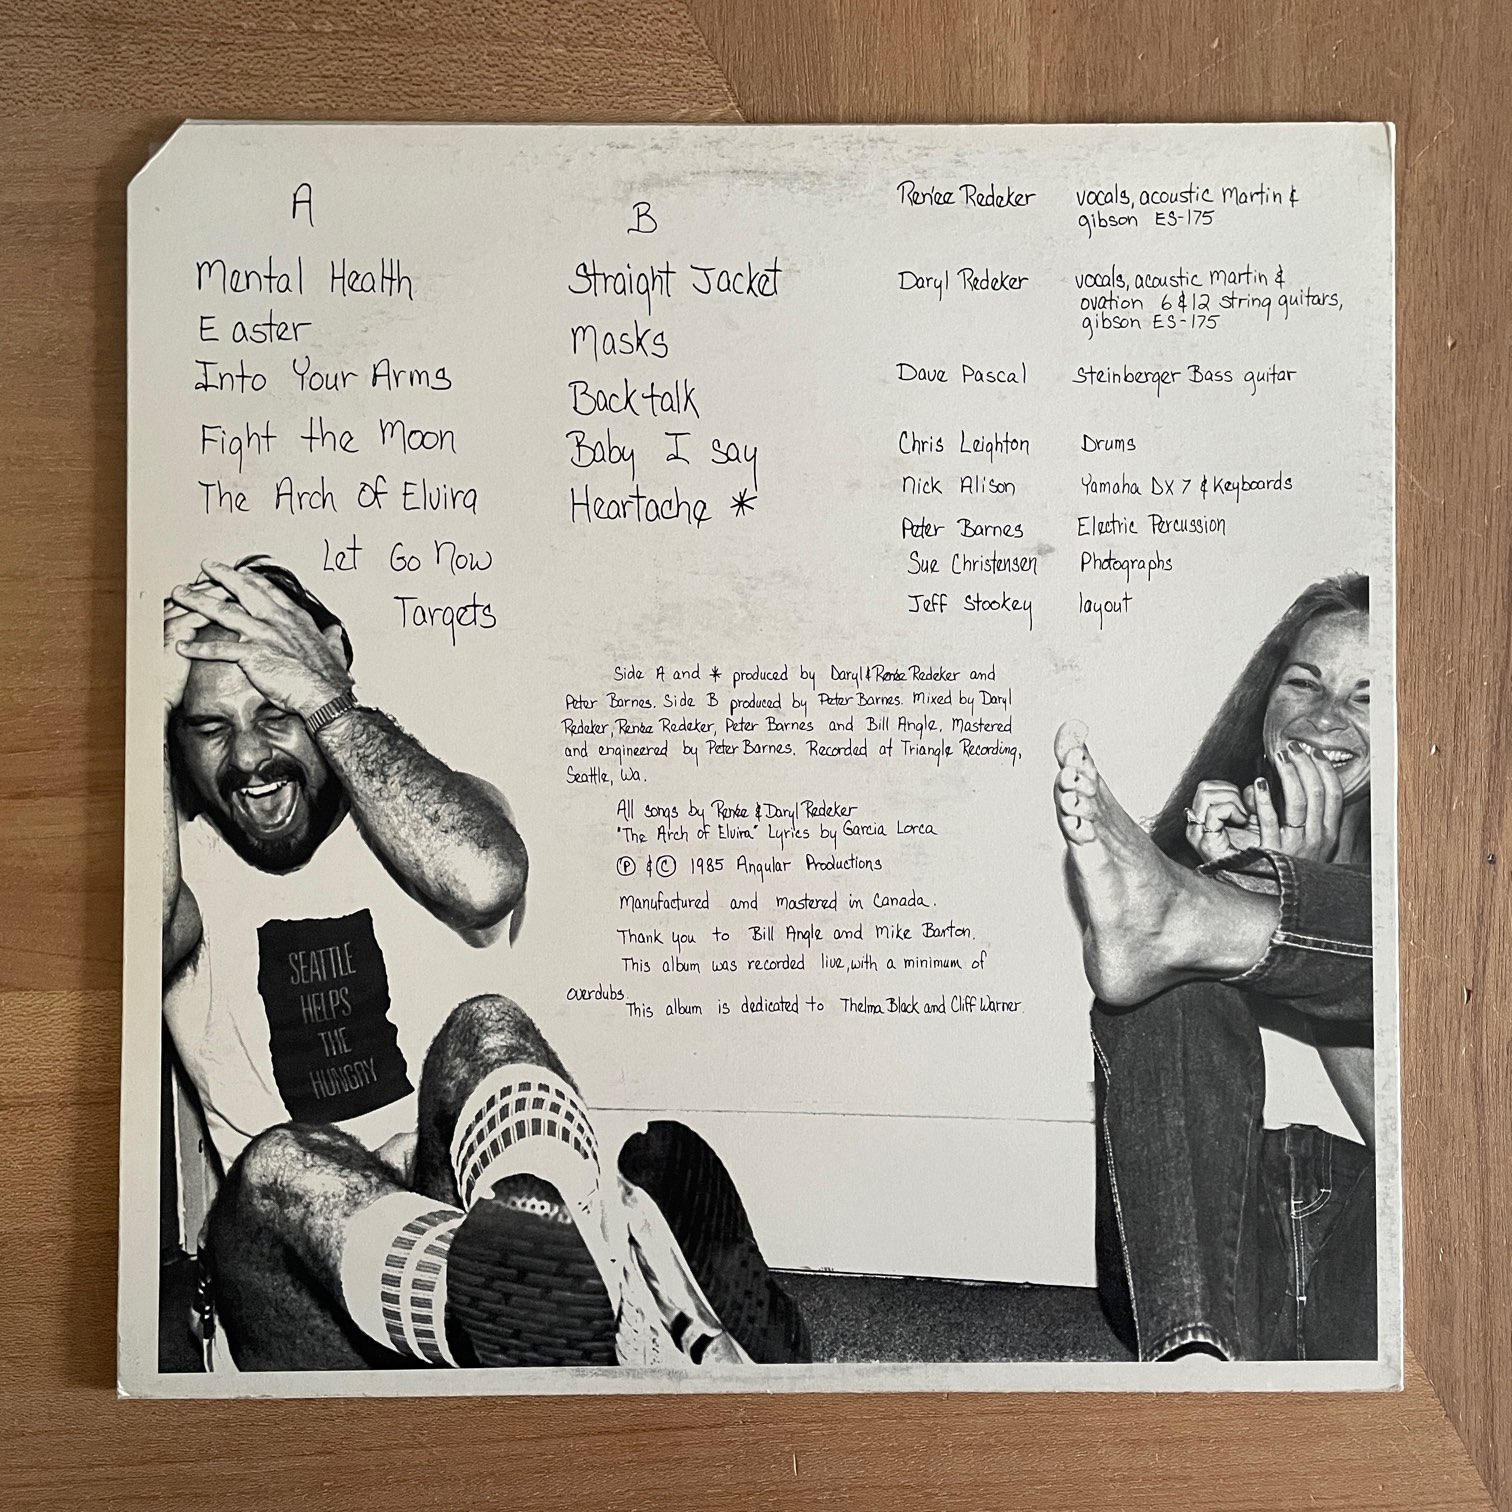 A
Mental Health
Easter
Into Your Arms
Fight the Moon
The Arch Of Elvira
Let Go Now
Targets
B
Straight Jacket
Masks
Backtalk
Baby I say
Heartache *
Renée Redeker vocals, acoustic Martin &
gibson ES-175
Daryl Redeker vocals, acoustic Martin &
ovation 6 & 12 string guitars,
gibson ES-175
Dave Pascal Steinberger Bass guitar
Chris Leighton Drums
Nick Alison Yamaha DX 7 & Keyboards
Peter Barnes Electric Percussion
Sue Christensen Photographs
Jeff Stookey layout
Side A and * produced by Daryl & Renée Redeker and
Peter Barnes. Side B produced by Peter Barnes. Mixed by Daryl
Redeker, Renée Redeker, Peter Barnes and Bill Angle. Mastered
and engineered by Peter Barnes. Recorded at Triangle Recording,
Seattle, Wa.
All songs by Renée & Daryl Redeker
"The Arch of Elvira" Lyrics by Garcia Lorca
Ⓟ & © 1985 Angular Productions
Manufactured and mastered in Canada.
Thank you to Bill Angle and Mike Barton.
This album was recorded live, with a minimum of
overdubs.
This album is dedicated to Thelma Black and Cliff Warner.
SEATTLE
HELPS
THE
HUNGRY